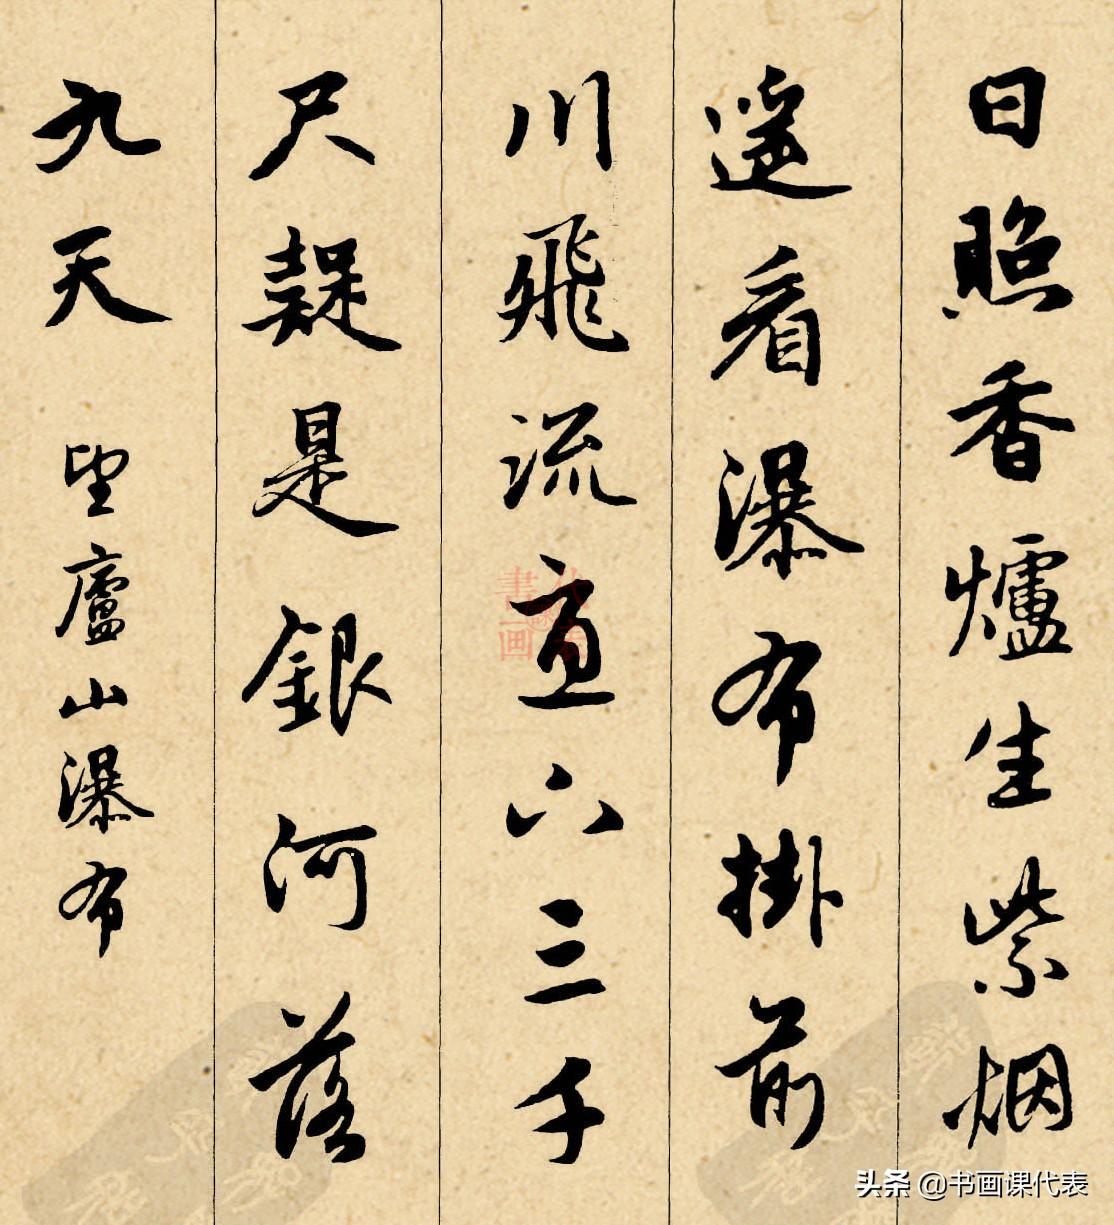 日照香爐生紫烟
遥看瀑布掛前
川飛流直下三千
尺疑是銀河落
九天 望廬山瀑布
头条 @书画课代表